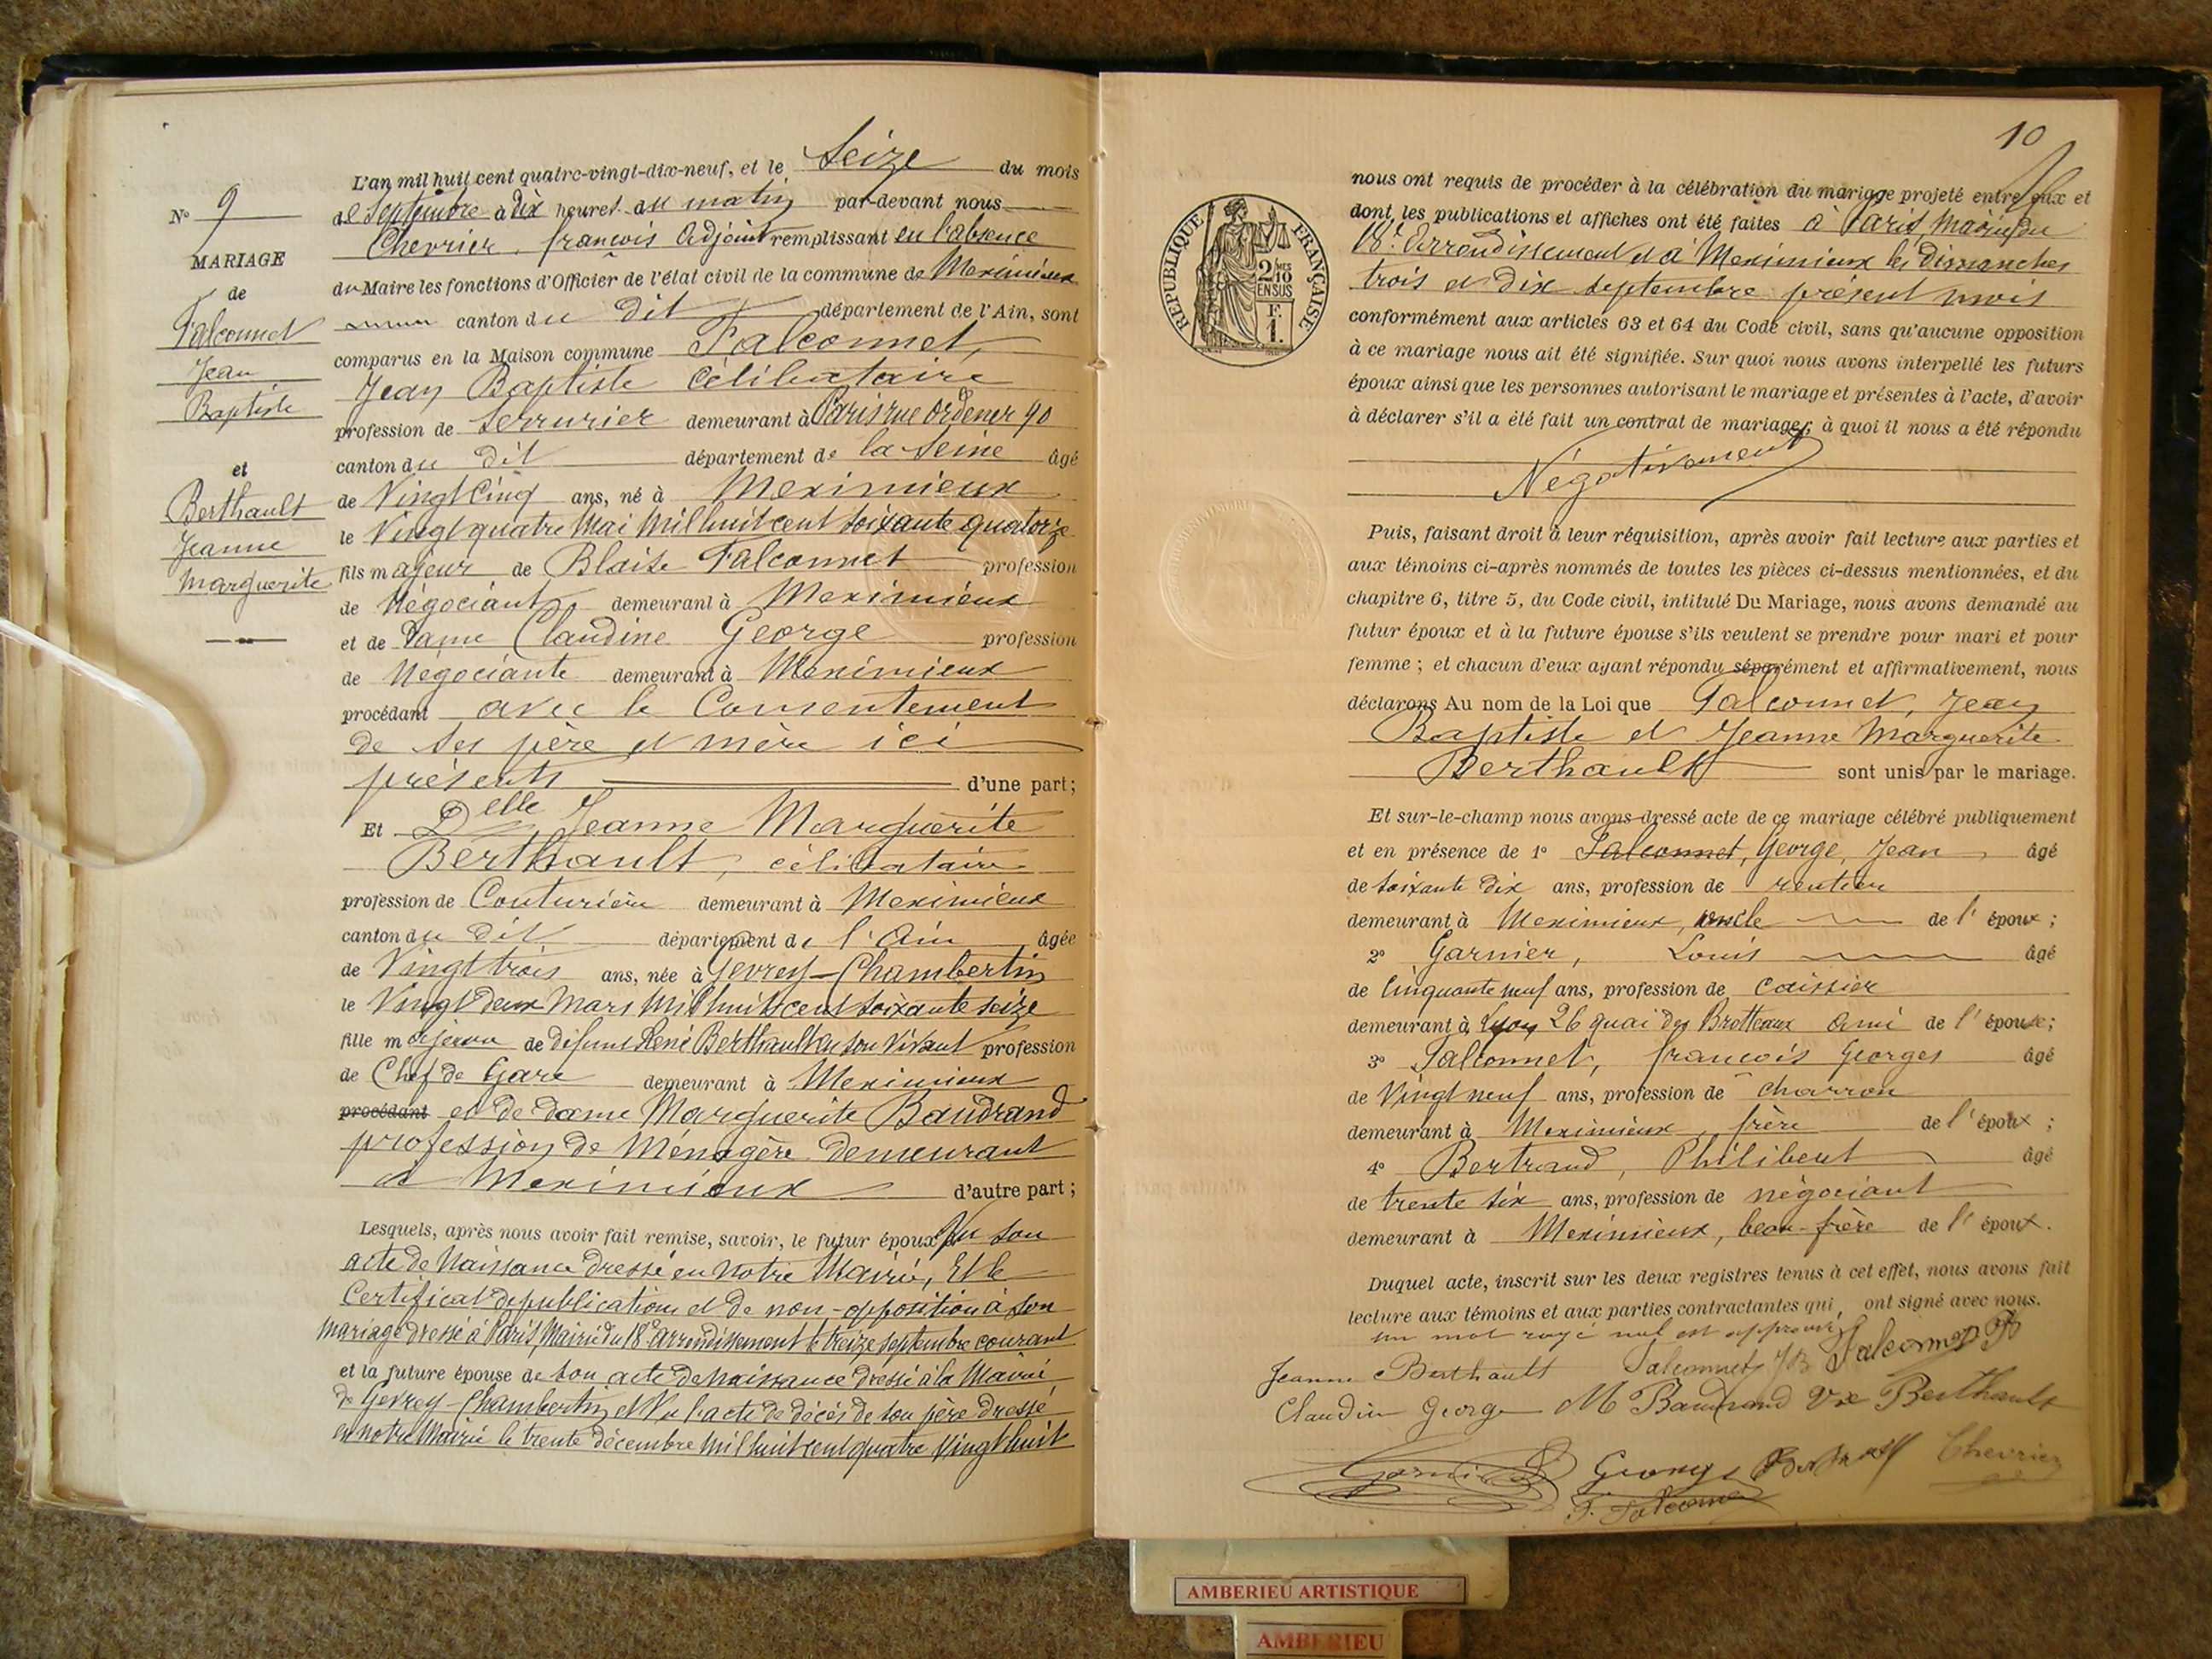 N° 9
MARIAGE
de
Falconnet
Jean
Baptiste
et
Berthault
Jeanne
Marguerite
L'an mil huit cent quatre-vingt-dix-neuf, et le Seize du mois
de Septembre à dix heures du matin par-devant nous
Chevrier, françois Adjoint remplissant en l'absence
du Maire les fonctions d'Officier de l'état civil de la commune de Meximieux
canton du dit département de l'Ain, sont
comparus en la Maison commune Falconnet,
Jean Baptiste Célibataire
profession de Serrurier demeurant à Paris rue Ordener 90
canton du dit département de la Seine âgé
de Vingt Cinq ans, né à Meximieux
le Vingt quatre Mai Mil huit cent soixante quatorze
fils majeur de Blaise Falconnet profession
de Négociant demeurant à Meximieux
et de Dame Claudine George profession
de Négociante demeurant à Meximieux
procédant avec le Consentement
de ses père et mère ici
présents d'une part;
Et Delle Jeanne Marguerite
Berthault, célibataire
profession de Couturière demeurant à Meximieux
canton du dit département de l'Ain âgée
de Vingt trois ans, née à Gevrey-Chambertin
le Vingt deux Mars Mil huit cent soixante seize
fille majeure de défunt René Berthault en son vivant profession
de Chef de Gare demeurant à Meximieux
procédant et de dame Marguerite Baudrand
profession de Ménagère demeurant
à Meximieux d'autre part;
Lesquels, après nous avoir fait remise, savoir, le futur époux Vu son
acte de Naissance dressé en notre Mairie, Et le
Certificat de publication et de non-opposition à son
mariage dressé à Paris, Mairie du 18e arrondissement le treize septembre courant
et la future épouse de son acte de naissance dressé à la Mairie
de Gevrey-Chambertin et Vu l'acte de décès de son père dressé
en notre Mairie le trente décembre Mil huit cent quatre vingt huit
10
RÉPUBLIQUE FRANÇAISE
2/10mes
EN SUS
F.
1.
nous ont requis de procéder à la célébration du mariage projeté entre eux et
dont les publications et affiches ont été faites à Paris, Mairie du
18e Arrondissement et à Meximieux les Dimanches
trois et dix septembre présent mois
conformément aux articles 63 et 64 du Code civil, sans qu'aucune opposition
à ce mariage nous ait été signifiée. Sur quoi nous avons interpellé les futurs
époux ainsi que les personnes autorisant le mariage et présentes à l'acte, d'avoir
à déclarer s'il a été fait un contrat de mariage, à quoi il nous a été répondu
Négativement
Puis, faisant droit à leur réquisition, après avoir fait lecture aux parties et
aux témoins ci-après nommés de toutes les pièces ci-dessus mentionnées, et du
chapitre 6, titre 5, du Code civil, intitulé Du Mariage, nous avons demandé au
futur époux et à la future épouse s'ils veulent se prendre pour mari et pour
femme; et chacun d'eux ayant répondu séparément et affirmativement, nous
déclarons Au nom de la Loi que Falconnet, Jean
Baptiste et Jeanne Marguerite
Berthault sont unis par le mariage.
Et sur-le-champ nous avons dressé acte de ce mariage célébré publiquement
et en présence de 1° Falconnet, George, Jean âgé
de soixante dix ans, profession de rentier
demeurant à Meximieux, oncle de l'époux;
2° Garnier, Louis âgé
de Cinquante neuf ans, profession de Caissier
demeurant à Lyon 26 quai des Brotteaux ami de l'épouse;
3° Falconnet, françois Georges âgé
de Vingt neuf ans, profession de charron
demeurant à Meximieux, frère de l'époux;
4° Bertrand, Philibert âgé
de trente six ans, profession de négociant
demeurant à Meximieux, beau-frère de l'époux.
Duquel acte, inscrit sur les deux registres tenus à cet effet, nous avons fait
lecture aux témoins et aux parties contractantes qui, ont signé avec nous.
un mot rayé nul est approuvé
Jeanne Berthault Falconnet JB Falconnet B
Claudine George M Baudrand Vve Berthault
Garnier George Bertrand Chevrier
F. Falconnet
AMBERIEU ARTISTIQUE
AMBERIEU